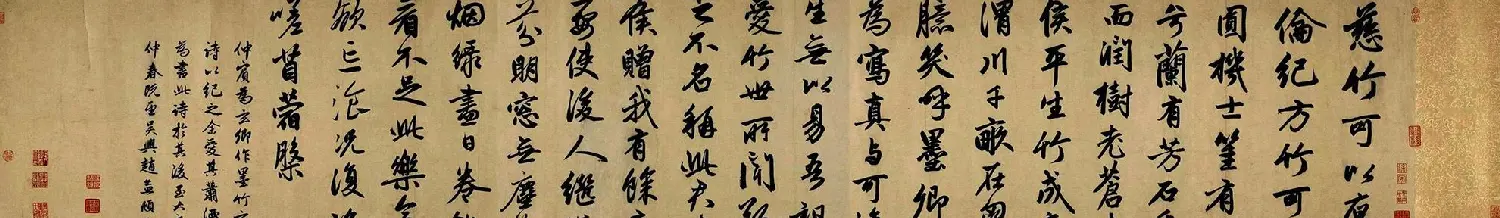 慈竹可以
倫紀方竹可
圓機士篁有
兮蘭有芳石
而潤樹老蒼
侯平生竹成
渭川千畝在
臆笑呼墨卿
為寫真與可
生無以易吾
愛竹世所聞
之不名稱此君
侯贈我有餘
要使後人繼
芬明窓無塵
烟綠盡日卷
看不足此樂
飡況復
嗟苜蓿槃
仲賓為玄卿作墨竹
詩以紀之余愛其蕭洒
為書此詩於其後至大
仲春既望吳興趙孟頫